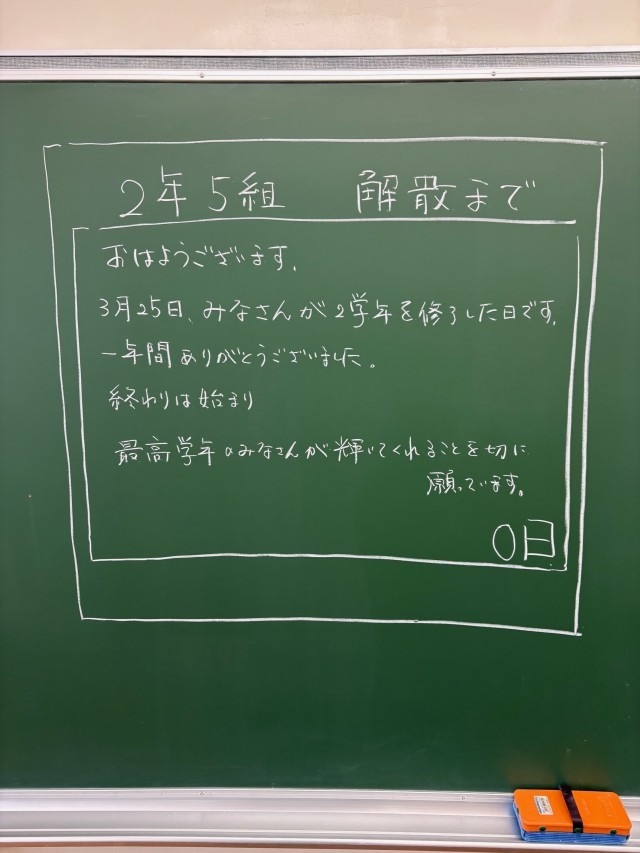 2年5組 解散まで
おはようございます。
3月25日、みなさんが2学年を修了した日です。
一年間ありがとうございました。
終わりは始まり
最高学年のみなさんが輝いてくれることを切に
願っています。
0日